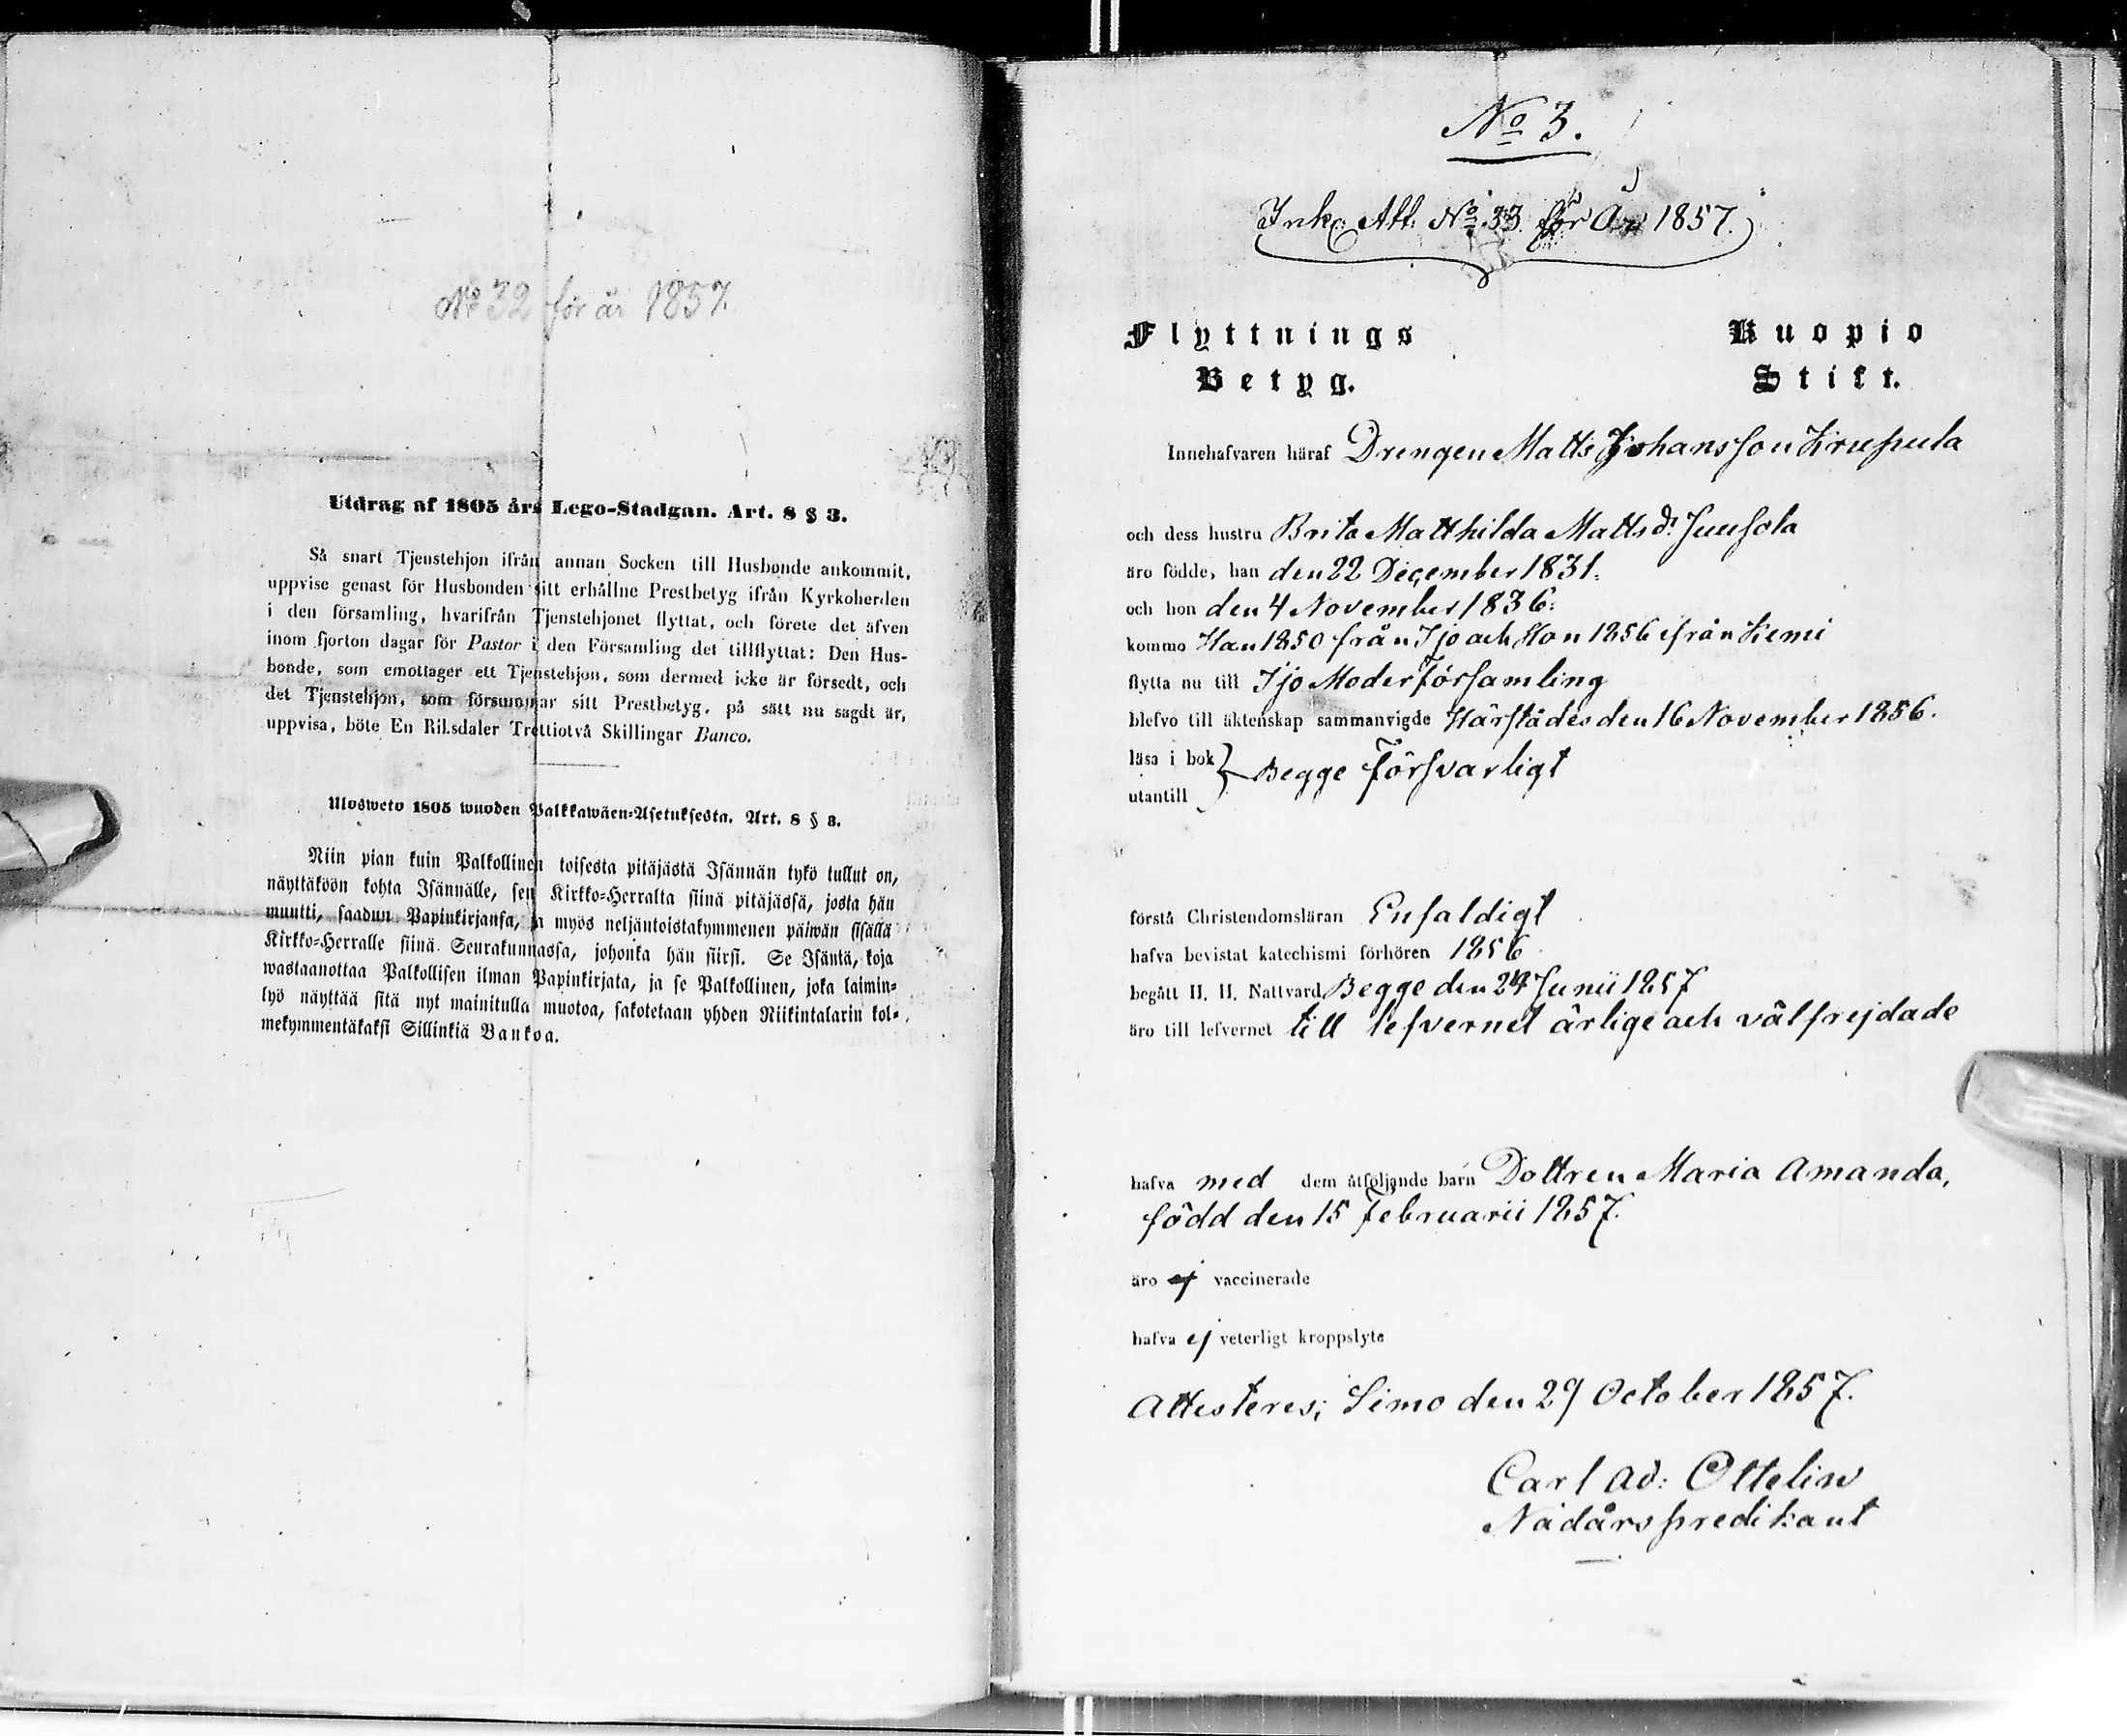 No 32 för år 1857.
Utdrag af 1805 års Lego-Stadgan. Art. 8 § 3.
Så snart Tjenstehjon ifrån annan Socken till Husbonde ankommit,
uppvise genast för Husbonden sitt erhållne Prestbetyg ifrån Kyrkoherden
i den församling, hvarifrån Tjenstehjonet flyttat, och förete det äfven
inom fjorton dagar för Pastor i den Församling det tillflyttat: Den Hus-
bonde, som emottager ett Tjenstehjon, som dermed icke är försedt, och
det Tjenstehjon, som försummar sitt Prestbetyg, på sätt nu sagdt är,
uppvisa, böte En Riksdaler Trettiotvå Skillingar Banco.
Ulosweto 1805 wuoden Palkkawäen-Asetuksesta. Art. 8 § 3.
Niin pian kuin Palkollinen toisesta pitäjästä Isännän tykö tullut on,
näyttäköön kohta Isännälle, sen Kirkko-Herralta siinä pitäjässä, josta hän
muutti, saadun Papinkirjansa, ja myös neljäntoistakymmenen päiwän sisällä
Kirkko-Herralle siinä Seurakunnassa, johonka hän siirsi. Se Isäntä, koja
wastaanottaa Palkollisen ilman Papinkirjata, ja se Palkollinen, joka laimin-
lyö näyttää sitä nyt mainitulla muotoa, sakotetaan yhden Riikintalarin kol-
mekymmentäkaksi Sillinkiä Bankoa.
No 3.
Ink. Att. No 33 för År 1857.
Flyttnings Kuopio
Betyg. Stift.
Innehafvaren häraf Drengen Matts Johansson Krupula
och dess hustru Brita Matthilda Mattsdr Juusola
äro födde, han den 22 December 1831.
och hon den 4 November 1836.
kommo Han 1850 från Ijo och Hon 1856 ifrån Kemi
flytta nu till Ijo Moderförsamling
blefvo till äktenskap sammanvigde Härstädes den 16 November 1856.
läsa i bok } Begge Försvarligt
utantill
förstå Christendomsläran Enfaldigt
hafva bevistat katechismi förhören 1856
begått H. H. Nattvard Begge den 24 Junii 1857
äro till lefvernet till lefvernet ärlige och välfrejdade
hafva med dem åtföljande barn Dottren Maria Amanda,
född den 15 Februarii 1857.
äro ej vaccinerade
hafva ej veterligt kroppslyte
Attesteres; Simo den 29 October 1857.
Carl Ad: Ottelin
Nådårspredikant